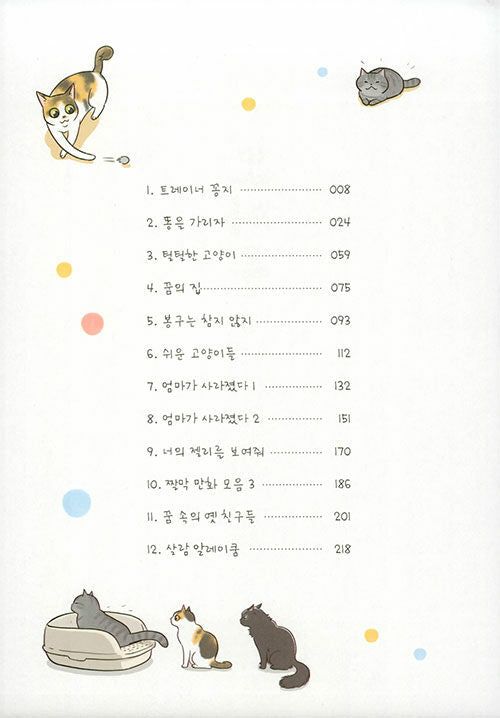 1. 트레이너 꽁지 ························ 008
2. 똥을 가리자 ·························· 024
3. 털털한 고양이 ······················· 059
4. 꿈의 집 ······························ 075
5. 봉구는 참지 않지 ··················· 093
6. 쉬운 고양이들 ······················· 112
7. 엄마가 사라졌다 1 ·················· 132
8. 엄마가 사라졌다 2 ·················· 151
9. 너의 젤리를 보여줘 ················· 170
10. 짤막 만화 모음 3 ·················· 186
11. 꿈 속의 옛 친구들 ················· 201
12. 살랑 알레이쿰 ······················ 218